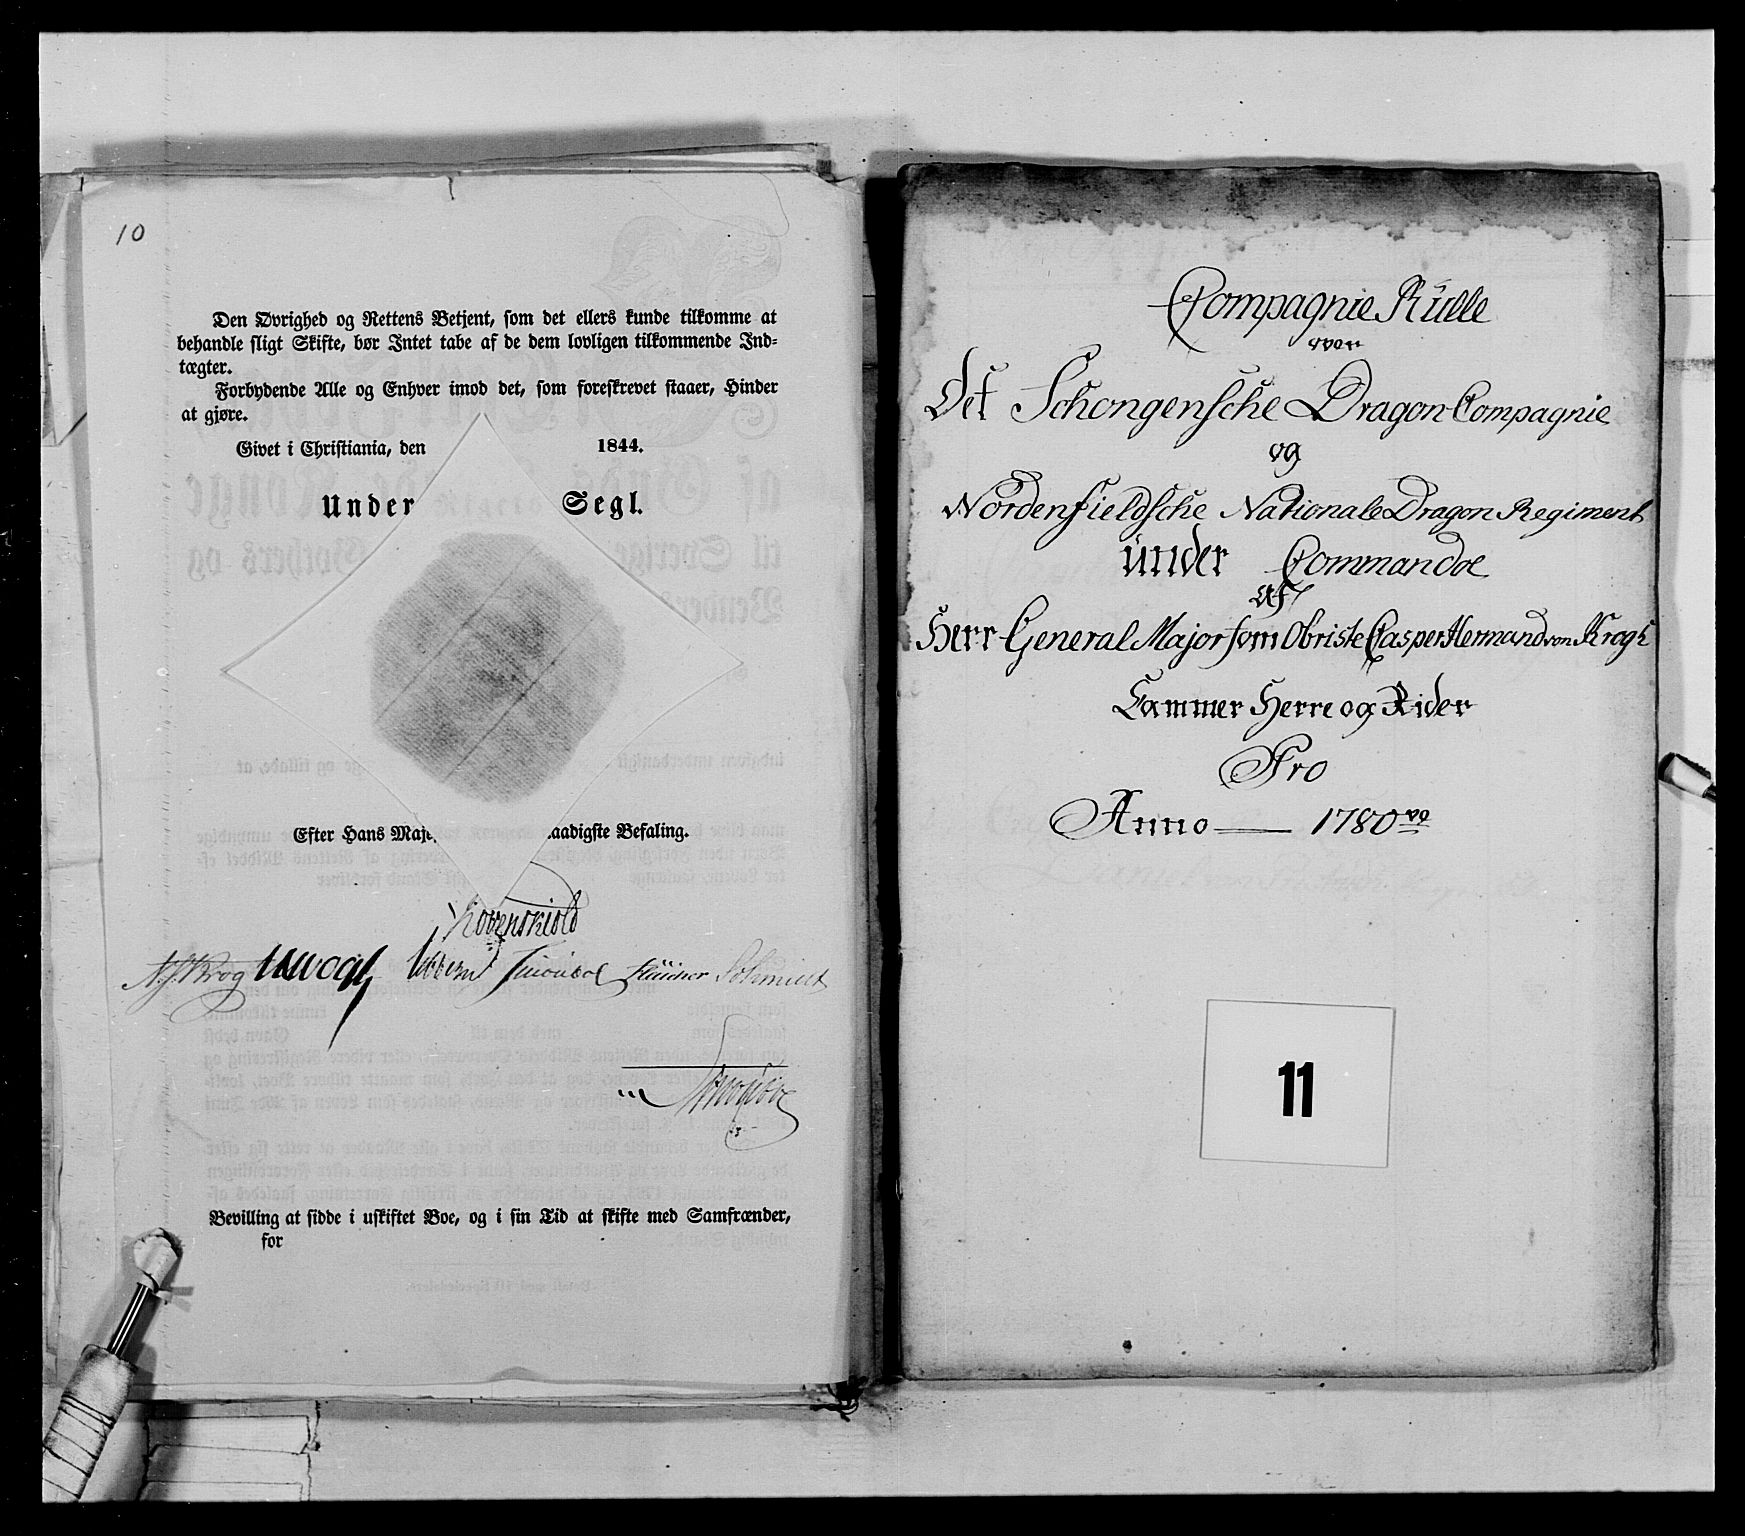 10
Den Øvrighed og Rettens Betjent, som det ellers kunde tilkomme at
behandle sligt Skifte, bør Intet tabe af de dem lovligen tilkommende Ind-
tægter.
Forbydende Alle og Enhver imod det, som foreskrevet staaer, Hinder
at gjøre.
Givet i Christiania, den 1844.
Under Segl.
Efter Hans Maje aadigste Befaling.
Schmidt
Bevilling at sidde i uskiftet Boe, og i sin Tid at skifte med Samfrænder,
for
Compagnie Rulle
over
Det Schongensche Dragon Compagnie
og
Nordenfieldsche Nationale Dragon Regiment
under Commandoe
af
Herr General Major som Obriste Casper Hermand von Krogh
Cammer Herre og Rider
Pro
Anno — 1780
11